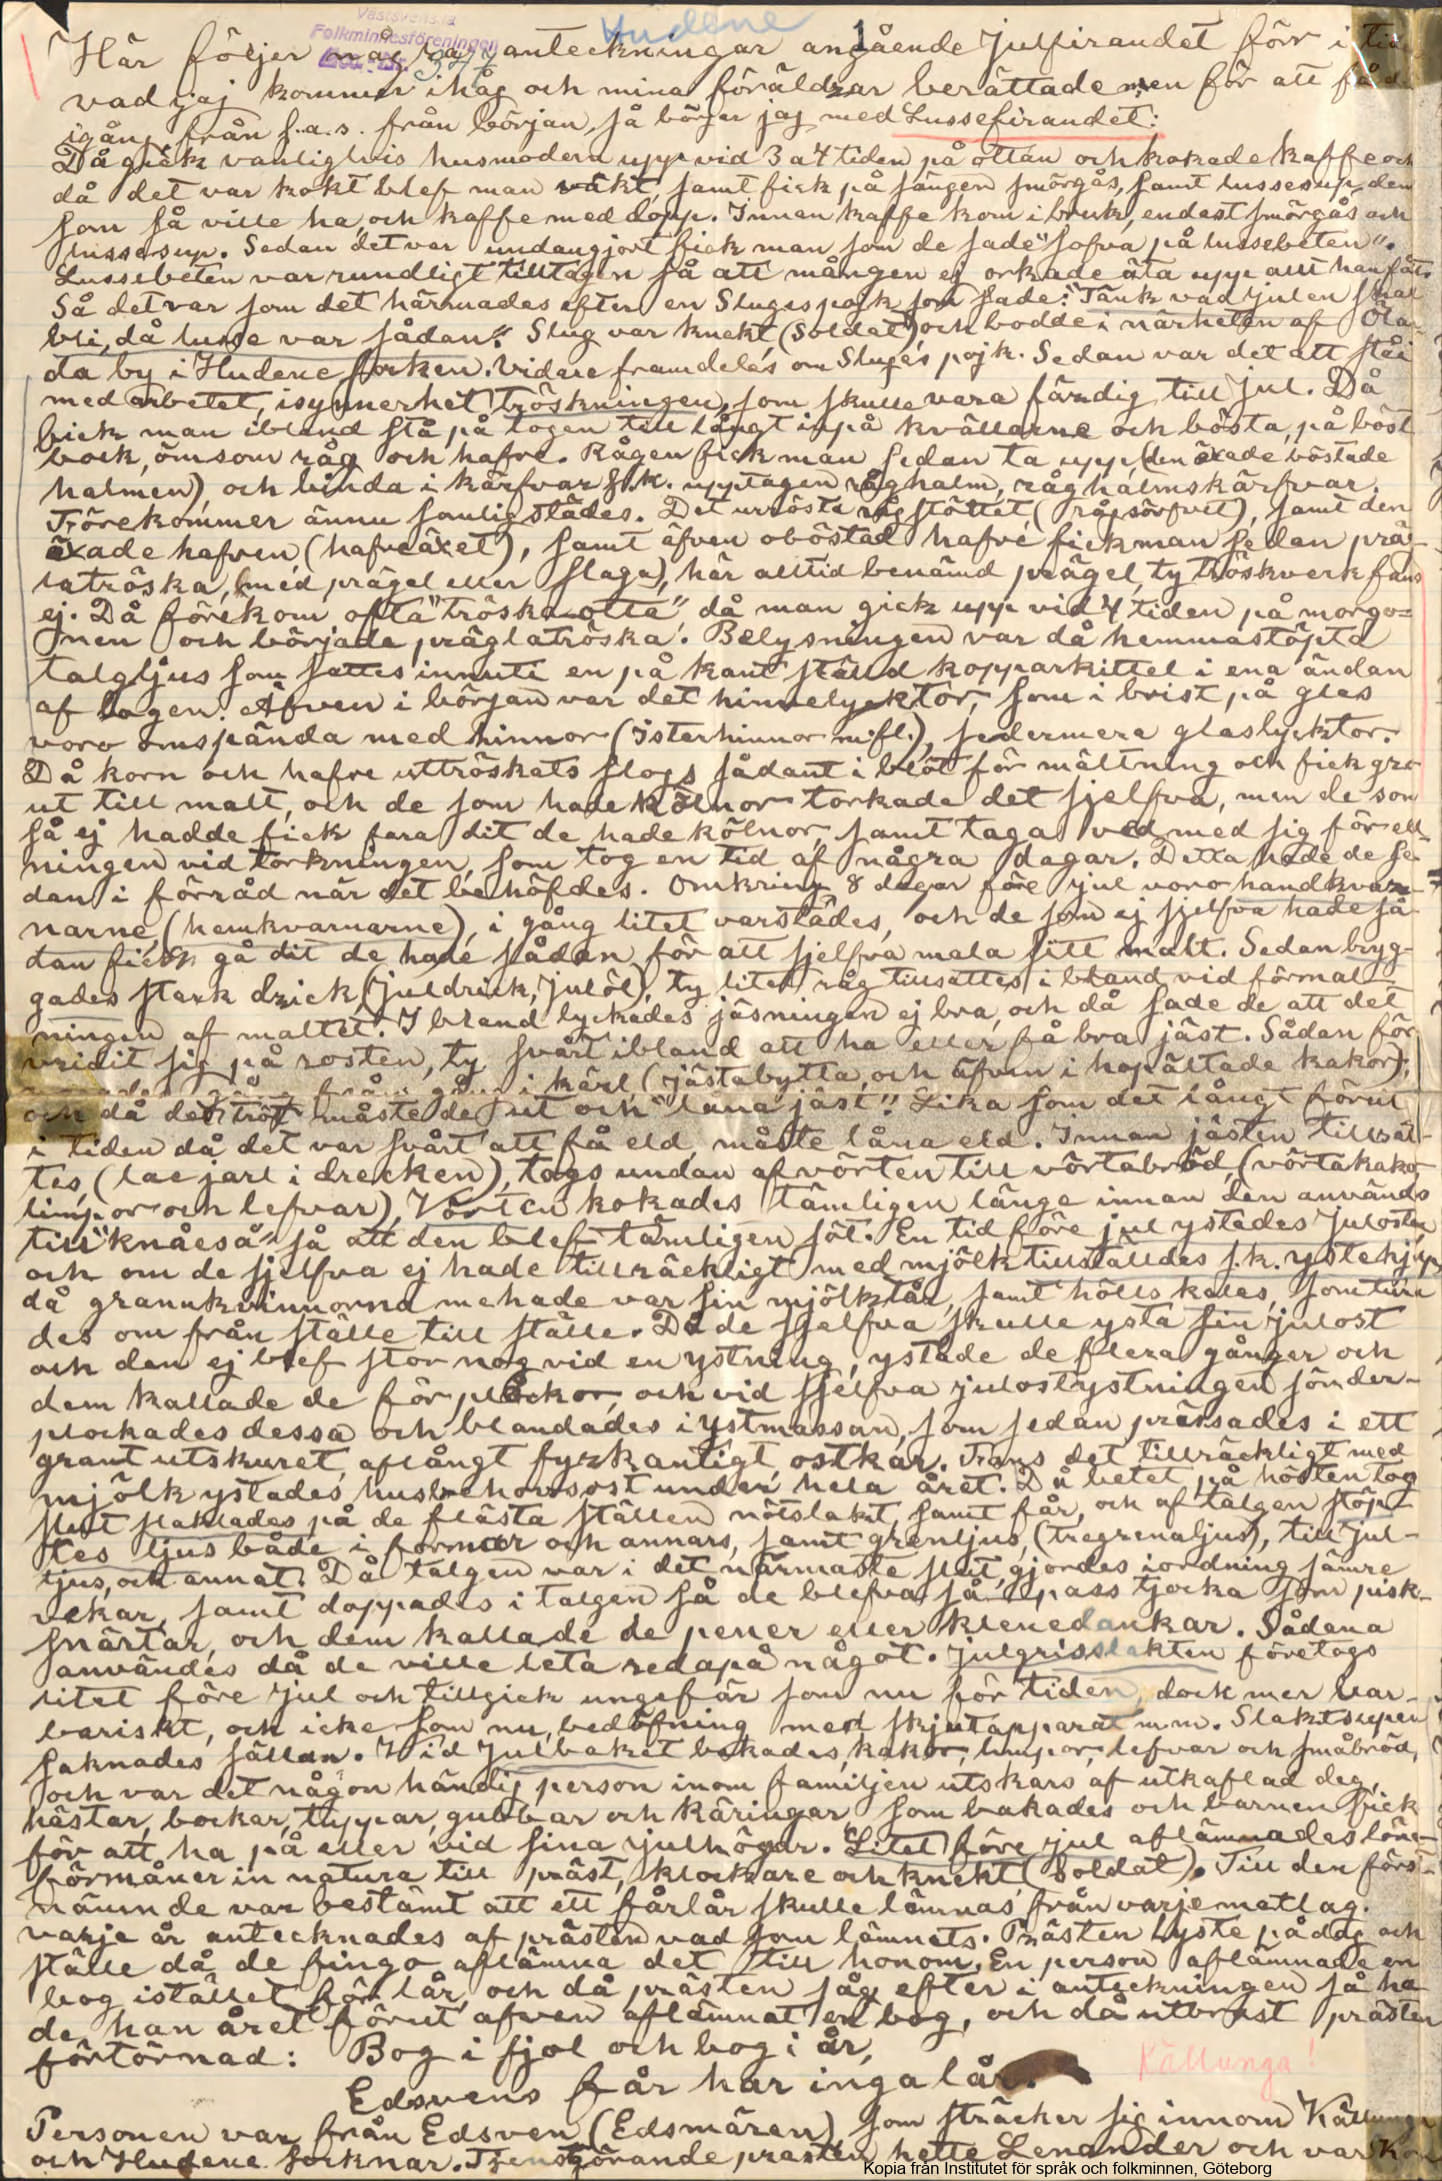 Västsvenska
Folkminnesföreningen
Hudene
1
Här följer några anteckningar angående Julfirandet förr i
vad jag kommer ihåg och mina föräldrar berättade men för att få
igång från f.a.s. från början, så börjar jag med Lussefirandet:
Då gick vanligtvis husmodern upp vid 3 a 4 tiden på ottan och kokade kaffe och
då det var kokt blef man väkt, samt fick på sängen smörgås, samt lussesup, dem
som så ville ha, och kaffe med dopp. Innan kaffe kom i bruk, endast smörgås och
lussesup. Sedan det var undangjort fick man som de sade "sofva på lussebeten".
Lussebeten var rundligt tilltagen så att mången ej orkade äta upp allt han fått
Så det var som det härmades efter en Slugs pojk som sade: "Tänk vad julen skal
bli, då lusse var sådan." Slug var knekt (Soldat) och bodde i närheten af Öla-
da by i Hudene socken. Vidare framdeles om Slugs's pojk. Sedan var det att stå i
med arbetet, isynnerhet tröskningen, som skulle vara färdig till jul. Då
fick man ibland stå på logen till långt inpå kvällarne och bösta, på böst
bock, ömsom råg och hafre. Rågen fick man sedan ta upp, (den äxade böstade
halmen), och binda i kärfvar s.k. upptagen råghalm, råghalmskärfvar.
Förekommer ännu somligstädes. Det urrösta rågstöttet, (rågsörfvet), samt den
äxade hafren (hafreäxet), samt äfven oböstad hafre fick man sedan prä-
latröska, (med prägel eller slaga), här alltid benämd prägel, ty tröskverk fans
ej. Då förekom ofta "tröska-otta", då man gick upp vid 4 tiden på morgo-
nen och började präglatröska. Belysningen var då hemmastöpta
talgljus som sattes innuti en på kant ställd kopparkittel i ena ändan
af logen. Äfven i början var det hinnelycktor, som i brist på glas
voro omspända med hinnor (Isterhinnor m.fl.), sedermera glaslycktor.
Då korn och hafre uttröskats slogs sådant i blöt för mältning och fick gro
ut till malt, och de som hade kölnor torkade det sjelfva, men de som
så ej hadde fick fara dit de hade kölnor, samt taga ved med sig för eld-
ningen vid torkningen, som tog en tid af några dagar. Detta hade de se-
dan i förråd när det behöfdes. Omkring 8 dagar före jul voro handkvar-
narne, (hemkvarnarne), i gång litet varstädes, och de som ej sjelfva hade så-
dan fick gå dit de hade sådan för att sjelfva mala sitt malt. Sedan bryg-
gades stark drick, (juldrick, julöl), ty litet råg tillsattes ibland vid förmal-
ningen af maltet. Ibland lyckades jäsningen ej bra, och då sade de att det
vridit sig på rosten, ty svårt ibland att ha eller få bra jäst. Sådan för
i kärl (jästabytta, och äfven i hopältade kakor),
och då det tröt måste de ut och "låna jäst". Lika som det långt förut
i tiden då det var svårt att få eld, måste låna eld. Innan jästen tillsät-
tes, (lae jarl i drecken), togs undan af vörten till vörtabröd, (vörtakakor
limpor och lefvar), Vörten kokades tämligen länge innan den används
till "knåeså" så att den blef tämligen söt. En tid före jul ystades Julosten
och om de sjelfva ej hade tillräckligt med mjölk tillställdes s.k. ystehjäp
då grannkvinnorna mehade var sin mjölktår, samt hölls kalas, som turä
des om från ställe till ställe. Då de sjelfva skulle ysta sin julost
och den ej blef stor nog vid en ystning, ystade de flera gånger och
dem kallade de för plockor, och vid sjelfva julostystningen sönder-
plockades dessa och blandades i ystmassan, som sedan präsades i ett
grant utskuret, aflångt fyrkantigt, ostkar. Fans det tillräckligt med
mjölk ystades husbehovsost under hela året. Då betet på hösten tog
slut slaktades på de flästa ställen nötslakt, samt får, och af talgen stöp-
tes ljus både i formar och annars, samt grenljus, (tregrenaljus), till jul-
ljus, och annat. Då talgen var i det närmaste slut, gjordes iordning sämre
vekar, samt doppades i talgen så de blefva så pass tjocka som pisk-
snärtar, och dem kallade de pener eller klenedankar. Sådana
användes då de ville leta reda på något. Julgrisslakten företogs
litet före jul och tillgick ungefär som nu för tiden, dock mer bar-
bariskt, och icke som nu, bedöfning med skjutapparat m.m. Slaktsupen
saknades sällan. Vid Julbaket bakades, kakor, limpor, lefvar och småbröd,
och var det någon händig person inom familjen utskars af utkaflad deg,
hästar, bockar, tuppar, gubbar och käringar, som bakades och barnen fick
för att ha på eller vid sina julhögar. Litet före jul aflämnades löne-
förmåner in natura till präst, klockare och knekt (Soldat). Till den förs-
nämnde var bestämt att ett fårlår skulle lämnas från varje matlag.
varje år antecknades af prästen vad som lämnats. Prästen lyste på dag och
ställe då de fingo aflämna det till honom. En person aflämnade en
bog istället för lår, och då prästen såg efter i anteckningen så ha
de han året förut äfven aflämnat en bog, och då utbrast prästen
förtörnad: Bog i fjol och bog i år,
Edsvens får har inga lår.
Källunga!
Personen var från Edsven (Edsmären), som sträcker sig innom Källunga
och Hudene socknar. Tjenstgörande prasten hette Lenander och var
Kopia från Institutet för språk och folkminnen, Göteborg